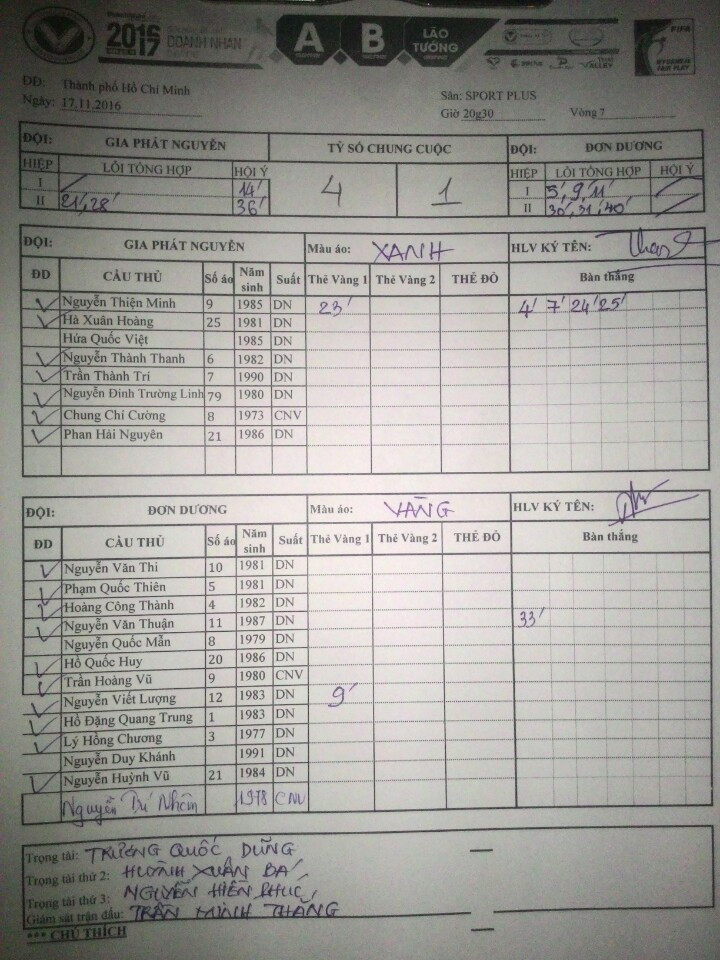 2016
2017
DOANH NHÂN
A
B
LÃO TƯỚNG
FIFA
MY GAME IS
FAIR PLAY
VALLEY
ĐĐ: Thành phố Hồ Chí Minh
Ngày: 17.11.2016
Sân: SPORT PLUS
Giờ 20g30 Vòng 7
ĐỘI: GIA PHÁT NGUYÊN TỶ SỐ CHUNG CUỘC ĐỘI: ĐƠN DƯƠNG
HIỆP LỖI TỔNG HỢP HỘI Ý 4 1 HIỆP LỖI TỔNG HỢP HỘI Ý
I 14' I 5', 9', 11'
II 21', 28' 36' II 30', 31', 40'
ĐỘI: GIA PHÁT NGUYÊN Màu áo: XANH HLV KÝ TÊN:
ĐD CẦU THỦ Số áo Năm sinh Suất Thẻ Vàng 1 Thẻ Vàng 2 THẺ ĐỎ Bàn thắng
Nguyễn Thiện Minh 9 1985 DN 23' 4' 7' 24' 25'
Hà Xuân Hoàng 25 1981 DN
Hứa Quốc Việt 1985 DN
Nguyễn Thành Thanh 6 1982 DN
Trần Thành Trí 7 1990 DN
Nguyễn Đình Trường Linh 79 1980 DN
Chung Chí Cường 8 1973 CNV
Phan Hải Nguyên 21 1986 DN
ĐỘI: ĐƠN DƯƠNG Màu áo: VÀNG HLV KÝ TÊN:
ĐD CẦU THỦ Số áo Năm sinh Suất Thẻ Vàng 1 Thẻ Vàng 2 THẺ ĐỎ Bàn thắng
Nguyễn Văn Thi 10 1981 DN
Phạm Quốc Thiên 5 1981 DN
Hoàng Công Thành 4 1982 DN
Nguyễn Văn Thuận 11 1987 DN 33'
Nguyễn Quốc Mẫn 8 1979 DN
Hồ Quốc Huy 20 1986 DN
Trần Hoàng Vũ 9 1980 CNV
Nguyễn Viết Lượng 12 1983 DN 9'
Hồ Đặng Quang Trung 1 1983 DN
Lý Hồng Chương 3 1977 DN
Nguyễn Duy Khánh 1991 DN
Nguyễn Huỳnh Vũ 21 1984 DN
Nguyễn Trí Nhân 1978 CNV
Trọng tài: TRƯƠNG QUỐC DŨNG
Trọng tài thứ 2: HUỲNH XUÂN BÁ
Trọng tài thứ 3: NGUYỄN HIỀN PHÚC
Giám sát trận đấu: TRẦN MINH THẮNG
*** CHÚ THÍCH